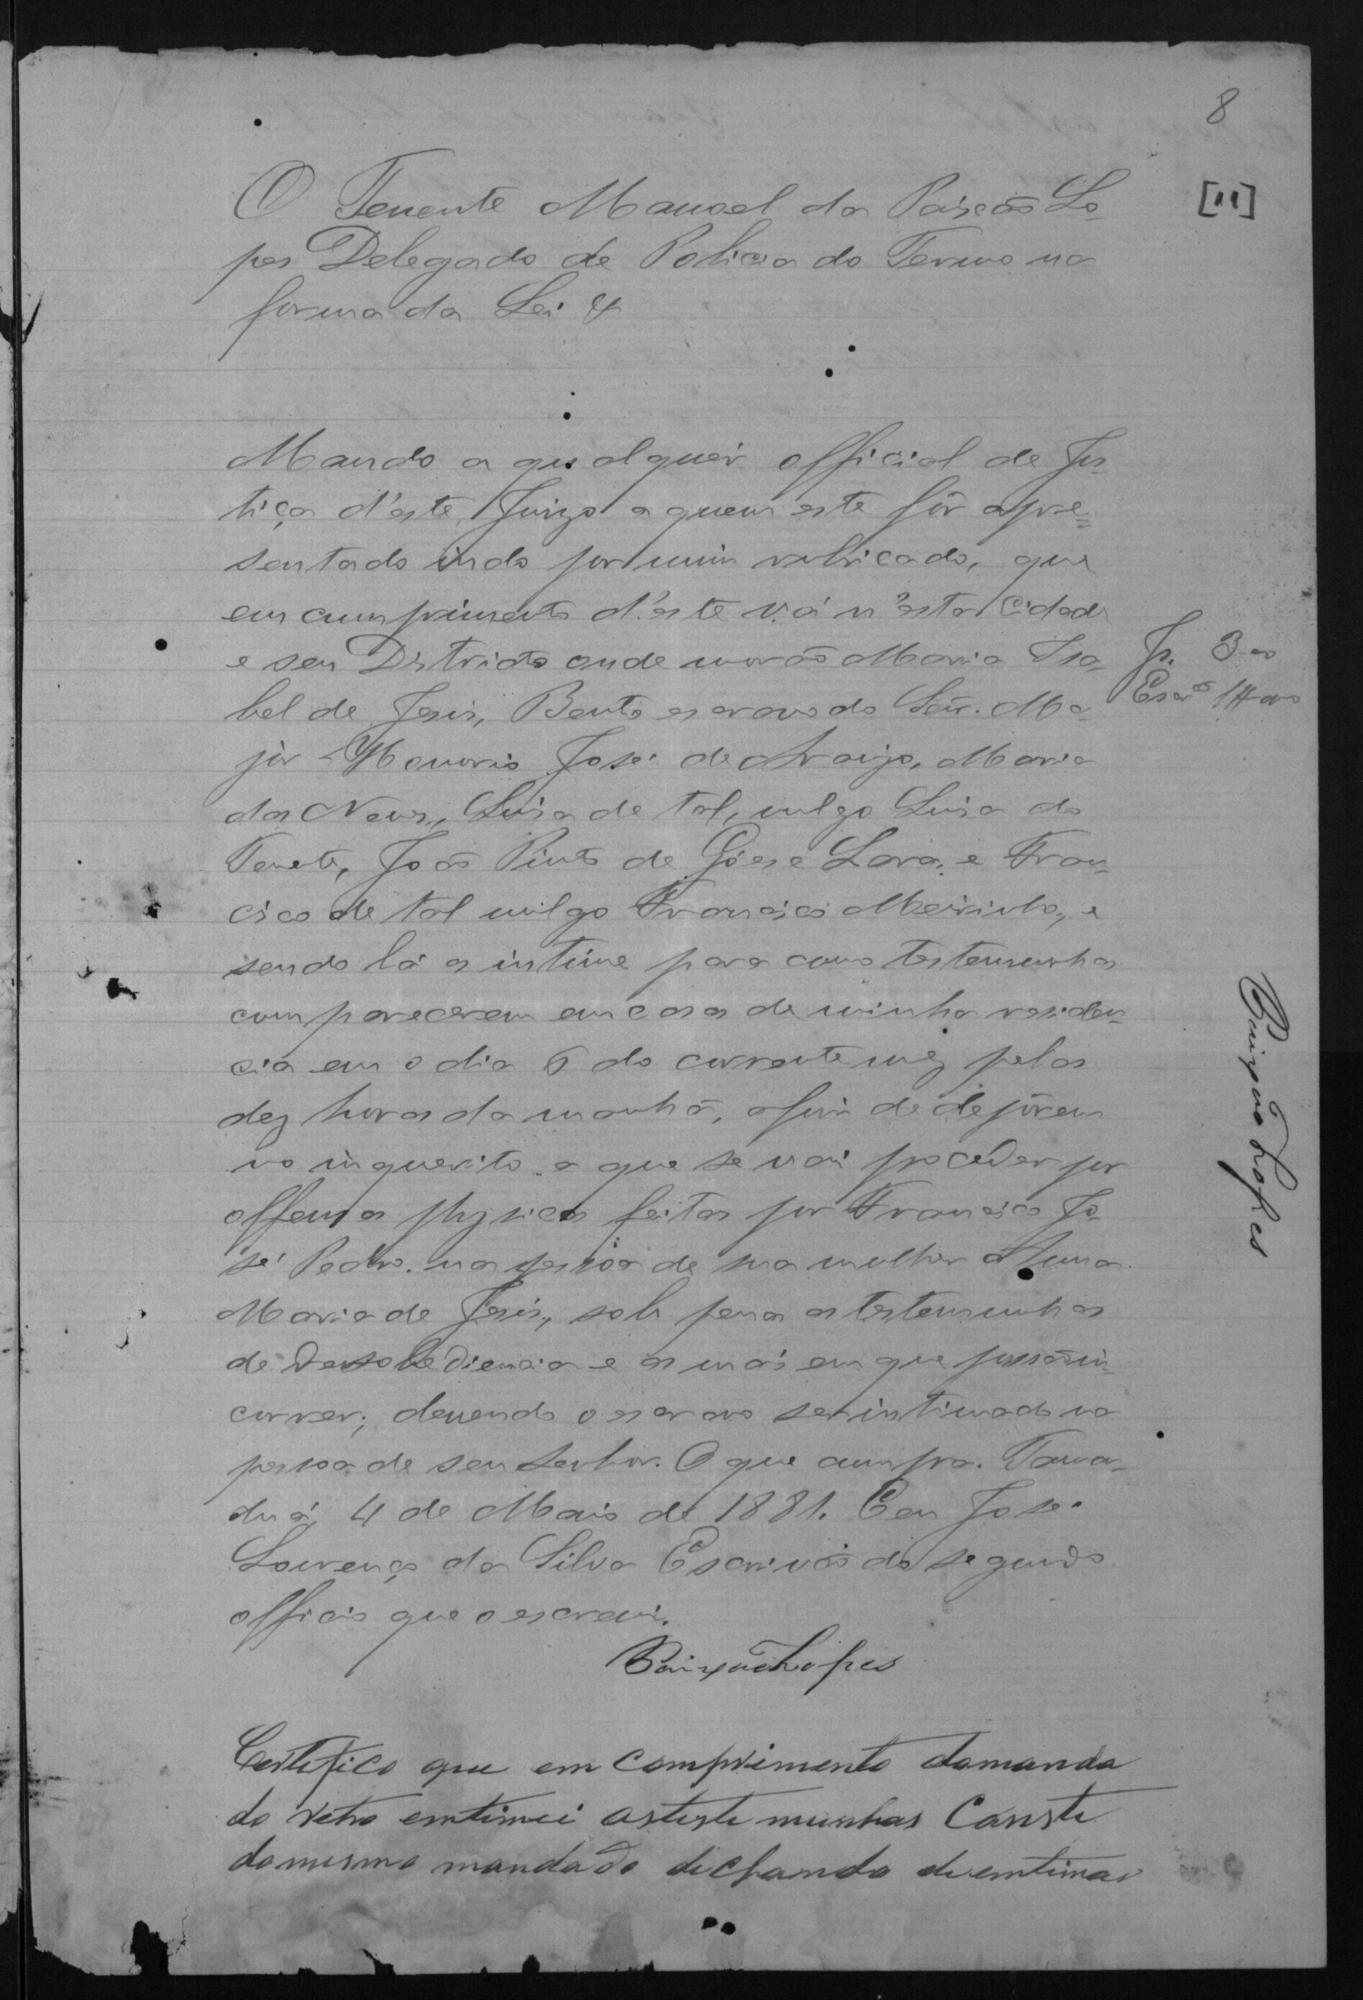 8
[11]
O Tenente Manoel da Paixão Lo-
pes Delegado de Policia do Termo na
forma da Lei &
Mando a qualquér official de Jus-
tiça d'este Juizo a quem este fôr apre-
sentado indo por mim rubricado, que
em cumprimento d'este vá n'esta Cidade
e seu Districto onde morão Maria Isa-
bel de Jesus, Bento escravo do Senr. Ma-
jor Honorio José de Araujo, Maria
das Neves, Luisa de tal, vulgo Luisa do
Tenete, João Pinto de Góes e Lara, e Fran-
cisco de tal vulgo Francisco Meirinho, e
sendo lá os intime para como testemunhas
comparecerem em casa de minha residen-
cia em o dia 6 do corrente mez pelas
dez horas da manhã, afim de depôrem
no inquerito a que se vai proceder por
offensas physicas feitas por Francisco Jo-
sé Pedro na pessoa de sua mulher Anna
Maria de Jesus, sob pena as testemunhas
de desobediencia e as mais em que possão in-
correr; devendo o escravo ser intimado na
pessoa de seu Senhor. O que cumpra. Taman-
duá 4 de Maio de 1881. Eu José
Lourenço da Silva Escrivão do segundo
officio que o escrevi.
Paixão Lopes
Certifico que em comprimento do manda
do retro emtimei as teste munhas Conste
do mesmo mandado dichando de emtimar
Paixão Lopes